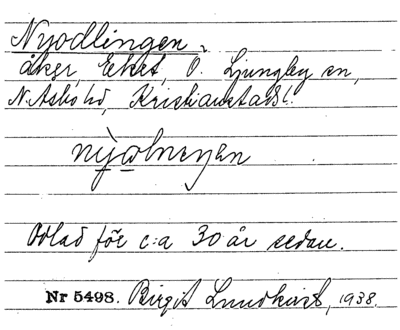 Nyodlingen
åker, Eket, Ö. Ljungby sn,
N. Åsbo hd, Kristianstads l.
Odlad för c:a 30 år sedan.
Nr 5498. Birgit Lundkvist, 1938.